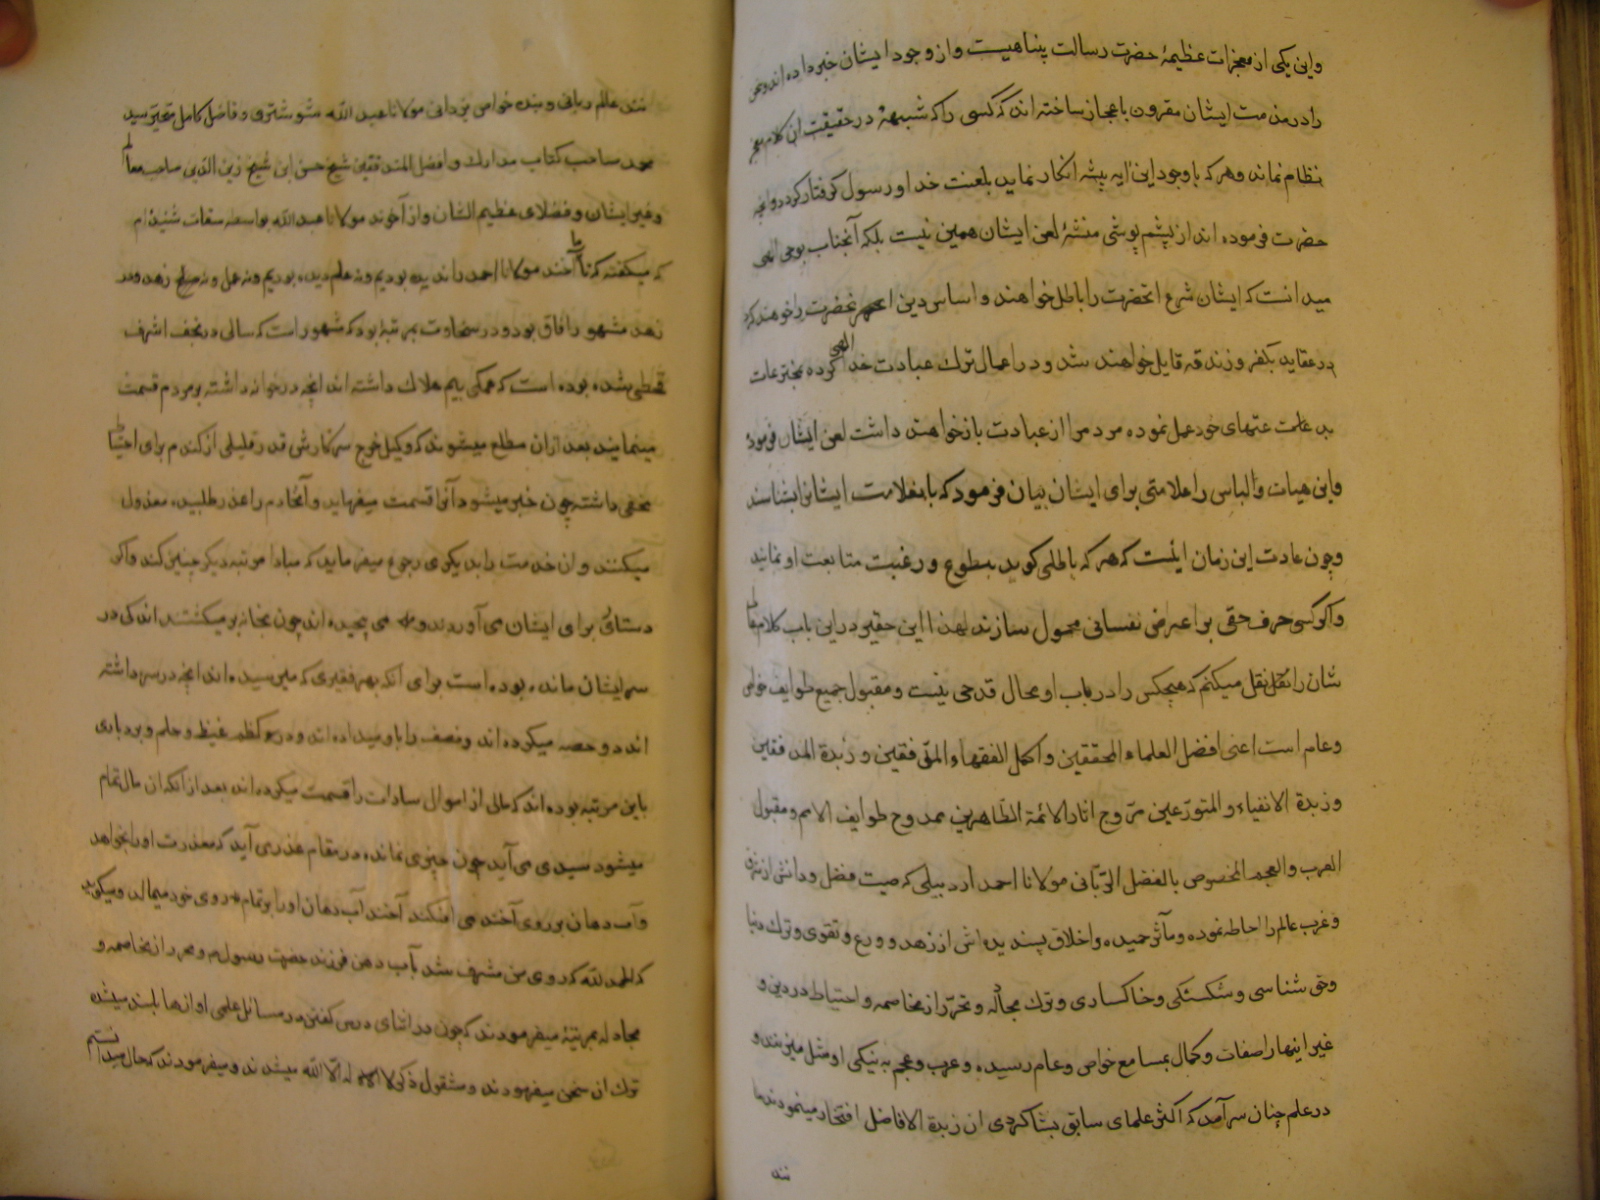 واین یکی از معجزات عظیمهٔ حضرت رسالت پناهیست و از وجود ایشان خبر داده اند و
را در مذمت ایشان مقرون باعجاز ساخته اند که کسی را که شبههٔ در حقیقت ان کلام معجز
نظام نماند و هر که با وجود این انکار نماید بلعنت خدا و رسول کرفتار کردد و انچه
حضرت فرموده اند از پشم پوشی منشهٔ لعن ایشان همین نیست بلکه آنجناب بوحی الهی
میدانست که ایشان شرع انحضرت را باطل خواهند و اساس دین انحضرت را خوهند کرد
در عقاید بکفر و زندقه قایل خواهند شد و در اعمال ترك عبادت خدا الهی کرده بمخترعات
بدعتهای خود عمل نموده مردم را از عبادت باز خواهند داشت لعن ایشان فرموده
واین هیات والباس را علامتی برای ایشان بیان فرمود که باین علامت ایشانرا بشناسند
وچون عادت این زمان اینست که هر که باطلی کوید بطوع و رغبت متابعت او نمایند
واکر کسی حرف حقی بر اعراض نفسانی محمول سازند لهذا این حقیر در این باب کلام
شان را نقل میکنم که هیچکس را در باب او مجال قدحی نیست و مقبول جمیع طوایف خواص
وعام است اعنی افضل العلماء المحققین و اکمل الفقهاء و زبدة المدققین
وزبدة الاتقیاء و المتورّعین مروج اثار الائمة الطّاهرین ممدوح طوایف الامم و مقبول
العرب والعجم المخصوص بالفضل الربّانی مولانا احمد اردبیلی که صیت فضل و دانش از شرق
و غرب عالم را احاطه نموده و مآثر حمیده و اخلاق پسندیده اش از زهد و ورع و تقوی و ترك دنیا
وحق شناسی و شکستکی و خاکساری و ترك مجادله و تحرّز از مخاصمه و احتیاط در دین و
غیر اینها از صفات و کمال بمسامع خواص و عام رسیده و عرب و عجم به نیکی او مثل میزنند و
در علم چنان سرآمد که اکثر علمای سابق بشاکردی ان زبدة الافاضل افتخار مینمودند
عالم ربانی و بنده خواص یزدانی مولانا عبد الله شوشتری و فاضل کامل سید
محمد صاحب کتاب مدارك و افضل المدققین شیخ حسن ابن شیخ زین الدین صاحب معالم
وغیر ایشان و فضلای عظیم الشان و از آخوند مولانا عبد الله بواسطه ثقات شنیدام
که میکفته که تا ما آخند مولانا احمد را ندیده بودیم نه علم دیده بودیم و نه عمل و نه صلح زهد و در
زهد مشهور آفاق بود و در سخاوت بمرتبهٔ بود که مشهور است که سالی در نجف اشرف
قحطی شده بوده است که همکی بیم هلاك داشته اند انچه در خانه داشته بر مردم قسمت
مینمایند بعد از ان مطلع میشوند که وکیل خرج سرکارشی قدر قلیلی از کندم برای احتیاط
مخفی داشته چون خبر میشود آنرا قسمت میفرماید و آنخادم را عذر طلبیده معزول
میکنند و ان خدمت را بدیکری رجوع میفرمایند که مبادا مرتبه دیکر چنین کند و اکر
دستاری برای ایشان می آوردند و می پیچیده اند چون بخانه بر میکشتند اندکی در
سر ایشان مانده بوده است برای انکه بهر فقیری که میرسیده اند انچه در سر داشته
اند دو حصه میکرده اند و نصف را باو میداده اند و در کظم غیظ و حلم و بردباری
باین مرتبه بوده اند که مالی از اموال سادات را قسمت میکرده اند بعد از انکه ان مال تمام
میشود سیدی می آید چون چیزی نمانده در مقام عذر می آید که معذرت او را بخواهد
و آب دهان بر روی آخند می افکند آخند آب دهان او را بر تمام روی خود میمالد و میکوید
که الحمد لله که روی من مشرف شد بآب دهن فرزند حضرت رسول و تحرز از مخاصمه و
مجادله بمرتبهٔ میفرمودند که چون در اثنای درس کفتن در مسائل علمی اوازها بلند میشده
ترك ان سخن میفرمودند و مشغول ذکر لا اله الّا الله میشدند و میفرمودند که حال میدانستیم